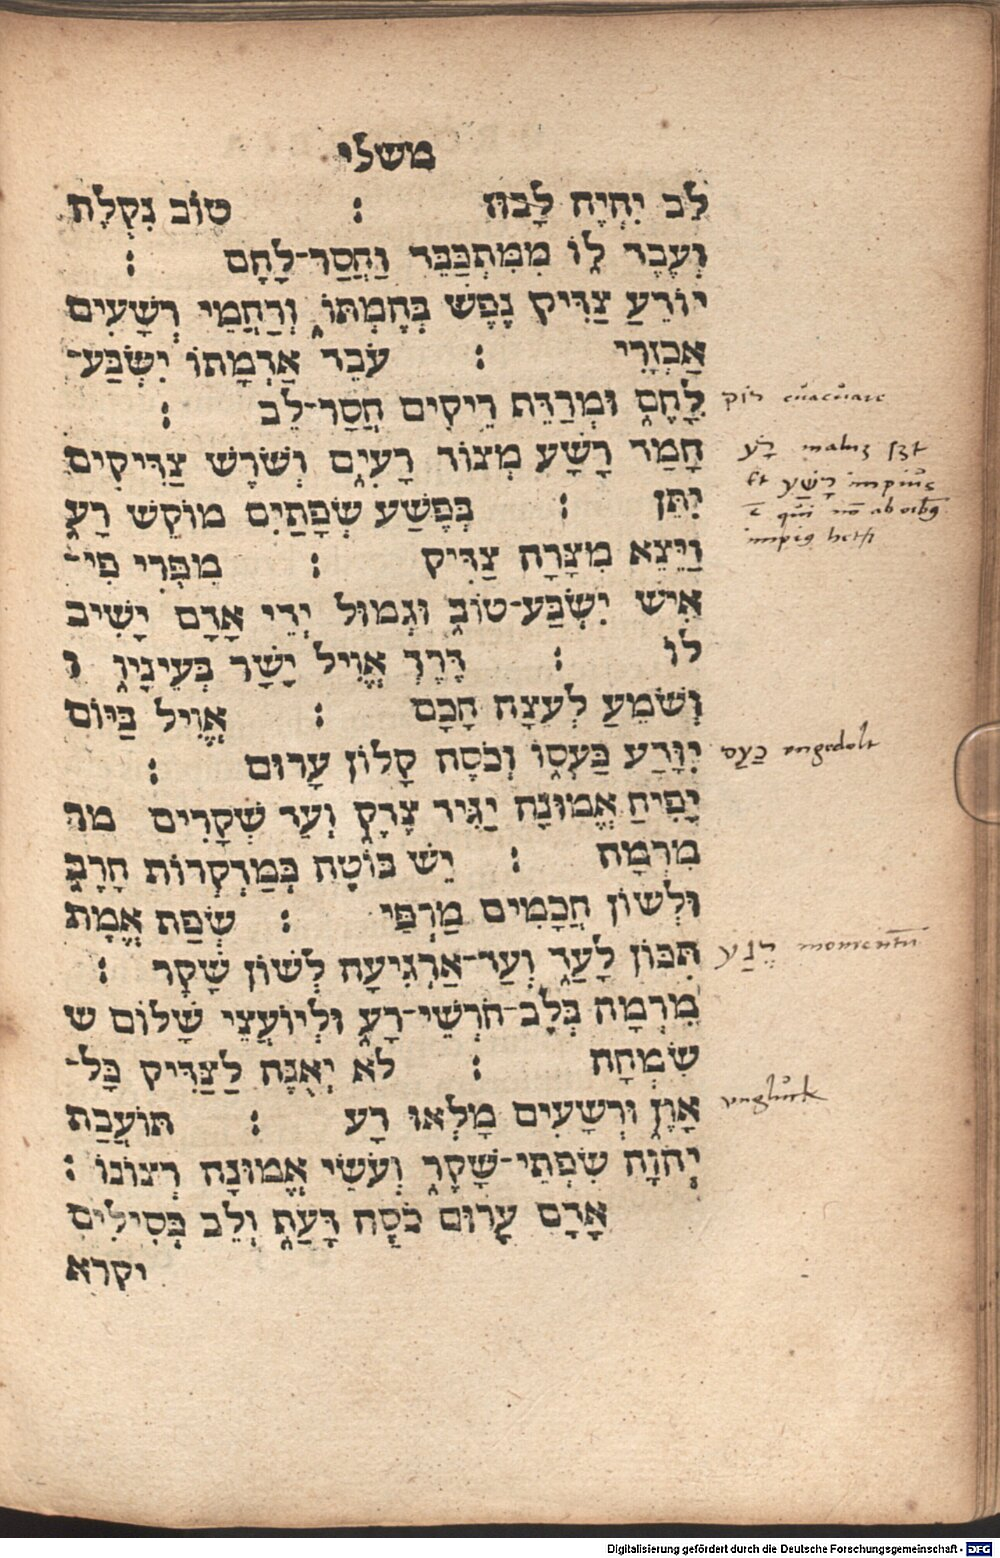 משלי
לֵב יִהְיֶה לָבוּז : טוֹב נִקְלֶה
וְעֶבֶד לוֹ מִמִּתְכַּבֵּד וַחֲסַר־לָחֶם :
יוֹדֵעַ צַדִּיק נֶפֶשׁ בְּהֶמְתּוֹ וְרַחֲמֵי רְשָׁעִים
אַכְזָרִי : עֹבֵד אַדְמָתוֹ יִשְׂבַּע־
לָחֶם וּמְרַדֵּף רֵיקִים חֲסַר־לֵב :
חָמַד רָשָׁע מְצוֹד רָעִים וְשֹׁרֶשׁ צַדִּיקִים
יִתֵּן : בְּפֶשַׁע שְׂפָתַיִם מוֹקֵשׁ רָע
וַיֵּצֵא מִצָּרָה צַדִּיק : מִפְּרִי פִי־
אִישׁ יִשְׂבַּע־טוֹב וּגְמוּל יְדֵי אָדָם יָשִׁיב
לוֹ : דֶּרֶךְ אֱוִיל יָשָׁר בְּעֵינָיו ו
וְשֹׁמֵעַ לְעֵצָה חָכָם : אֱוִיל בַּיּוֹם
יִוָּדַע כַּעְסוֹ וְכֹסֶה קָלוֹן עָרוּם :
יָפִיחַ אֱמוּנָה יַגִּיד צֶדֶק וְעֵד שְׁקָרִים מר
מִרְמָה : יֵשׁ בּוֹטֶה כְּמַדְקְרוֹת חָרֶב
וּלְשׁוֹן חֲכָמִים מַרְפֵּי : שְׂפַת אֱמֶת
תִּכּוֹן לָעַד וְעַד־אַרְגִּיעָה לְשׁוֹן שָׁקֶר :
מִרְמָה בְּלֶב־חֹרְשֵׁי־רָע וּלְיוֹעֲצֵי שָׁלוֹם ש
שִׂמְחָה : לֹא יְאֻנֶּה לַצַּדִּיק כָּל־
אָוֶן וּרְשָׁעִים מָלְאוּ רָע : תּוֹעֲבַת
יְהוָה שִׂפְתֵי־שָׁקֶר וְעֹשֵׂי אֱמוּנָה רְצוֹנוֹ :
אָדָם עָרוּם כֹּסֶה דָּעַת וְלֵב כְּסִילִים
יקרא
רוק euacuare
רָע malus
et רָשָׁע impius
כַּעַס ungedolt
רֶגַע momentum
unglück
Digitalisierung gefördert durch die Deutsche Forschungsgemeinschaft - DFG